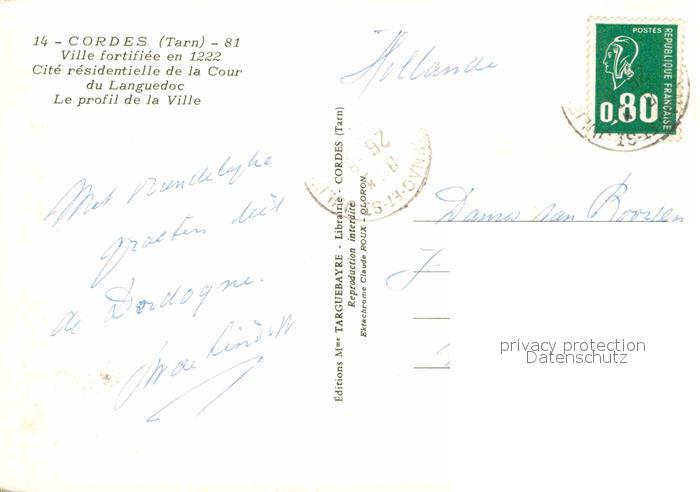 14 - CORDES (Tarn) - 81
Ville fortifiée en 1222
Cité résidentielle de la Cour
du Languedoc
Le profil de la Ville
Met vriendelijke
groeten uit
de Dordogne.
Hollande
Éditions Mme TARGUEBAYRE - Librairie - CORDES (Tarn)
Reproduction interdite
Ektachrome Claude ROUX - OLORON
POSTES
RÉPUBLIQUE FRANÇAISE
0,80
Dama van
J.
privacy protection
Datenschutz